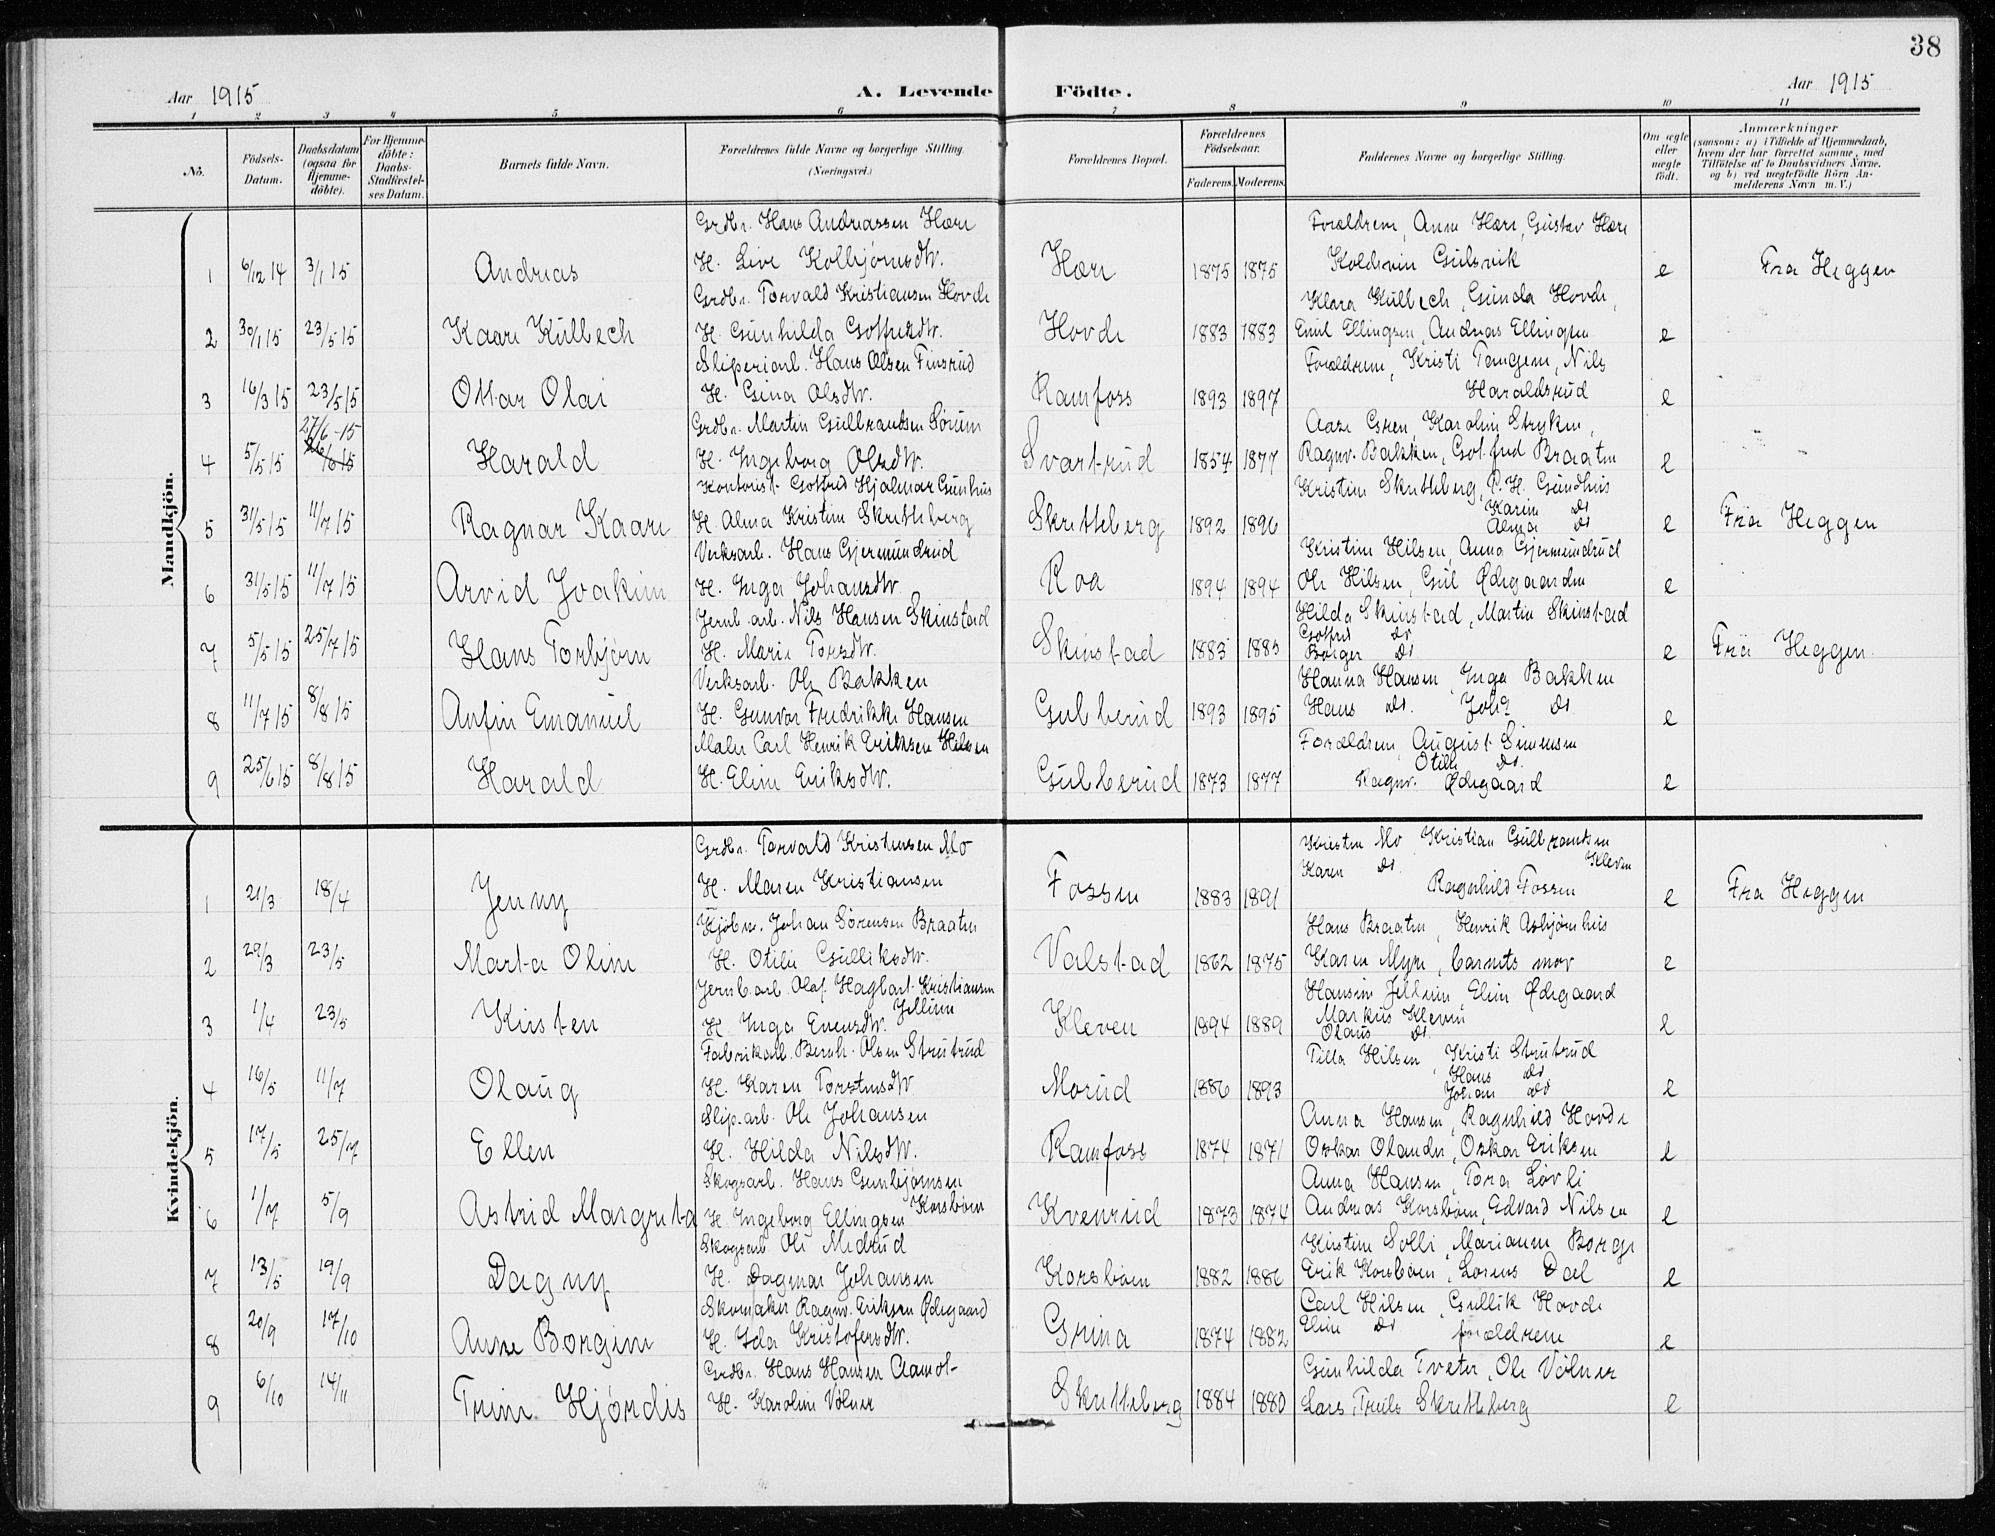 38
Aar 1915
A. Levende Födte.
Aar 1915
1 2 3 4 5 6 7 8 9 10 11
No.
Födsels-Datum.
Daabsdatum (ogsaa for Hjemmedöbte).
For Hjemmedöbte: Daabs-Stadfæstelses Datum.
Barnets fulde Navn.
Forældrenes fulde Navne og borgerlige Stilling. (Næringsvei.)
Forældrenes Bopæl.
Forældrenes Födselsaar.
Faderens. Moderens.
Faddernes Navne og borgerlige Stilling.
Om ægte eller uægte födt.
Anmærkninger (saasom: a) i Tilfælde af Hjemmedaab, hvem der har forrettet samme, med Tilföielse af to Daabsvidners Navne, og b) ved uægtefödte Börn Anmelderens Navn m. V.)
Mandkjön.
Grdbr. Hans Andreassen Hære Forældrene, Anne Hære, Gustav Hære
1 6/12 14 3/1 15 Andreas H. Live Kolbjørnsdtr. Hære 1875 1875 Koldevin Gulsvik e Fra Heggen
Grdbr. Torvald Kristiansen Hovde Klara Kulbech, Gunda Hovde,
2 30/1 15 23/5 15 Kaare Kulbech H. Gunhilda Gotfredsdtr. Hovde 1883 1883 Emil Ellingsen, Andreas Ellingsen e
Sliperiarb. Hans Olsen Finsrud Forældrene, Kristi Tangen, Nils
3 16/3 15 23/5 15 Ottar Olai H. Gina Olsdtr. Ramfoss 1893 1897 Haraldsrud e
27/6-15 Grdbr. Martin Gulbrandsen Sørum Aase Gren, Karoline Stryken,
4 5/5 15 26/6 15 Harald H. Ingeborg Olsdtr. Svartrud 1854 1877 Ragnv. Bakken, Gotfred Braaten e
Kontorist Gotfred Hjalmar Gunhus Kristine Skretteberg, P. H. Gundhus
5 31/5 15 11/7 15 Ragnar Kaare H. Alma Kristine Skretteberg Skretteberg 1892 1896 Karine do Alma do e Fra Heggen
Verksarb. Hans Gjermundrud Kristine Hilsen, Anna Gjermundrud
6 31/5 15 11/7 15 Arvid Joakim H. Inga Johansdtr. Roa 1894 1894 Ole Hilsen, Gul Ødegaarden e
Jernb. arb. Nils Hansen Skinstad Hilda Skinstad, Martin Skinstad
7 5/5 15 25/7 15 Hans Torbjørn H. Marie Torsdtr. Skinstad 1883 1885 Gotfred do Borger do e Fra Heggen.
Verksarb. Ole Bakken Hanna Hansen, Inga Bakken
8 11/7 15 8/8 15 Anfin Emanuel H. Gunvor Fredrikke Hansen Gulberud 1893 1895 Hans do. Joh. do e
Maler Carl Henrik Eriksen Hilsen Forældrene, August Simensen
9 25/6 15 8/8 15 Harald H. Eline Eriksdtr. Gulberud 1873 1877 Otilie do. Ragnv. Ødegaard e
Kvindekjön.
Grdbr. Torvald Kristensen Mo Kristen Mo, Kristian Gulbrandsen Kleven
1 21/3 18/4 Jenny H. Maren Kristiansen Fossen 1883 1891 Karen do. Ragnhild Fossen e Fra Heggen
Kjøbm. Johan Sørensen Braaten Hans Braaten, Henrik Asbjørnhus
2 29/3 23/5 Marta Oline H. Otilie Gulliksdtr. Valstad 1862 1875 Karen Myre, barnets mor e
Jernb. arb. Olaf Hagbart Kristiansen Jellum Hansine Jellum, Eline Ødegaard
3 1/4 23/5 Kirsten H. Inga Evensdtr. Kleven 1894 1889 Markus Kleven Olaus do. e
Fabrikarb. Bernh. Olsen Strutrud Tilla Hilsen, Kristi Strutrud
4 16/5 11/7 Olaug H. Karen Torstensdtr. Morud 1886 1893 Hans do Johan do e
Slip.arb. Ole Johansen Anna Hansen, Ragnhild Hovde
5 17/5 25/7 Ellen H. Hilda Nilsdtr. Ramfoss 1874 1871 Oskar Olander, Oskar Eriksen e
Skogsarb. Hans Gunbjørnsen Korsbøen Anna Hansen, Tora Løvli
6 1/7 5/9 Astrid Margreta H. Ingeborg Ellingsen Kvenrud 1873 1874 Andreas Korsbøen, Edvard Nilsen e
Skogsarb. Ole Medrud Kirstine Solli, Marianne Borge
7 13/5 19/9 Dagny H. Dagmar Johansen Korsbøen 1882 1886 Erik Korsbøen, Lorens Dal e
Skomaker Ragnv. Eriksen Ødegaard Carl Hilsen, Gullik Hovde
8 20/9 17/10 Anne Borgine H. Ida Kristofersdtr. Grina 1874 1882 Eline do forældrene e
Grdbr. Hans Hansen Aamot Gunhilda Tveter, Ole Vølner
9 6/10 14/11 Trine Hjørdis H. Karoline Vølner Skretteberg 1884 1880 Lars, Truls Skretteberg e